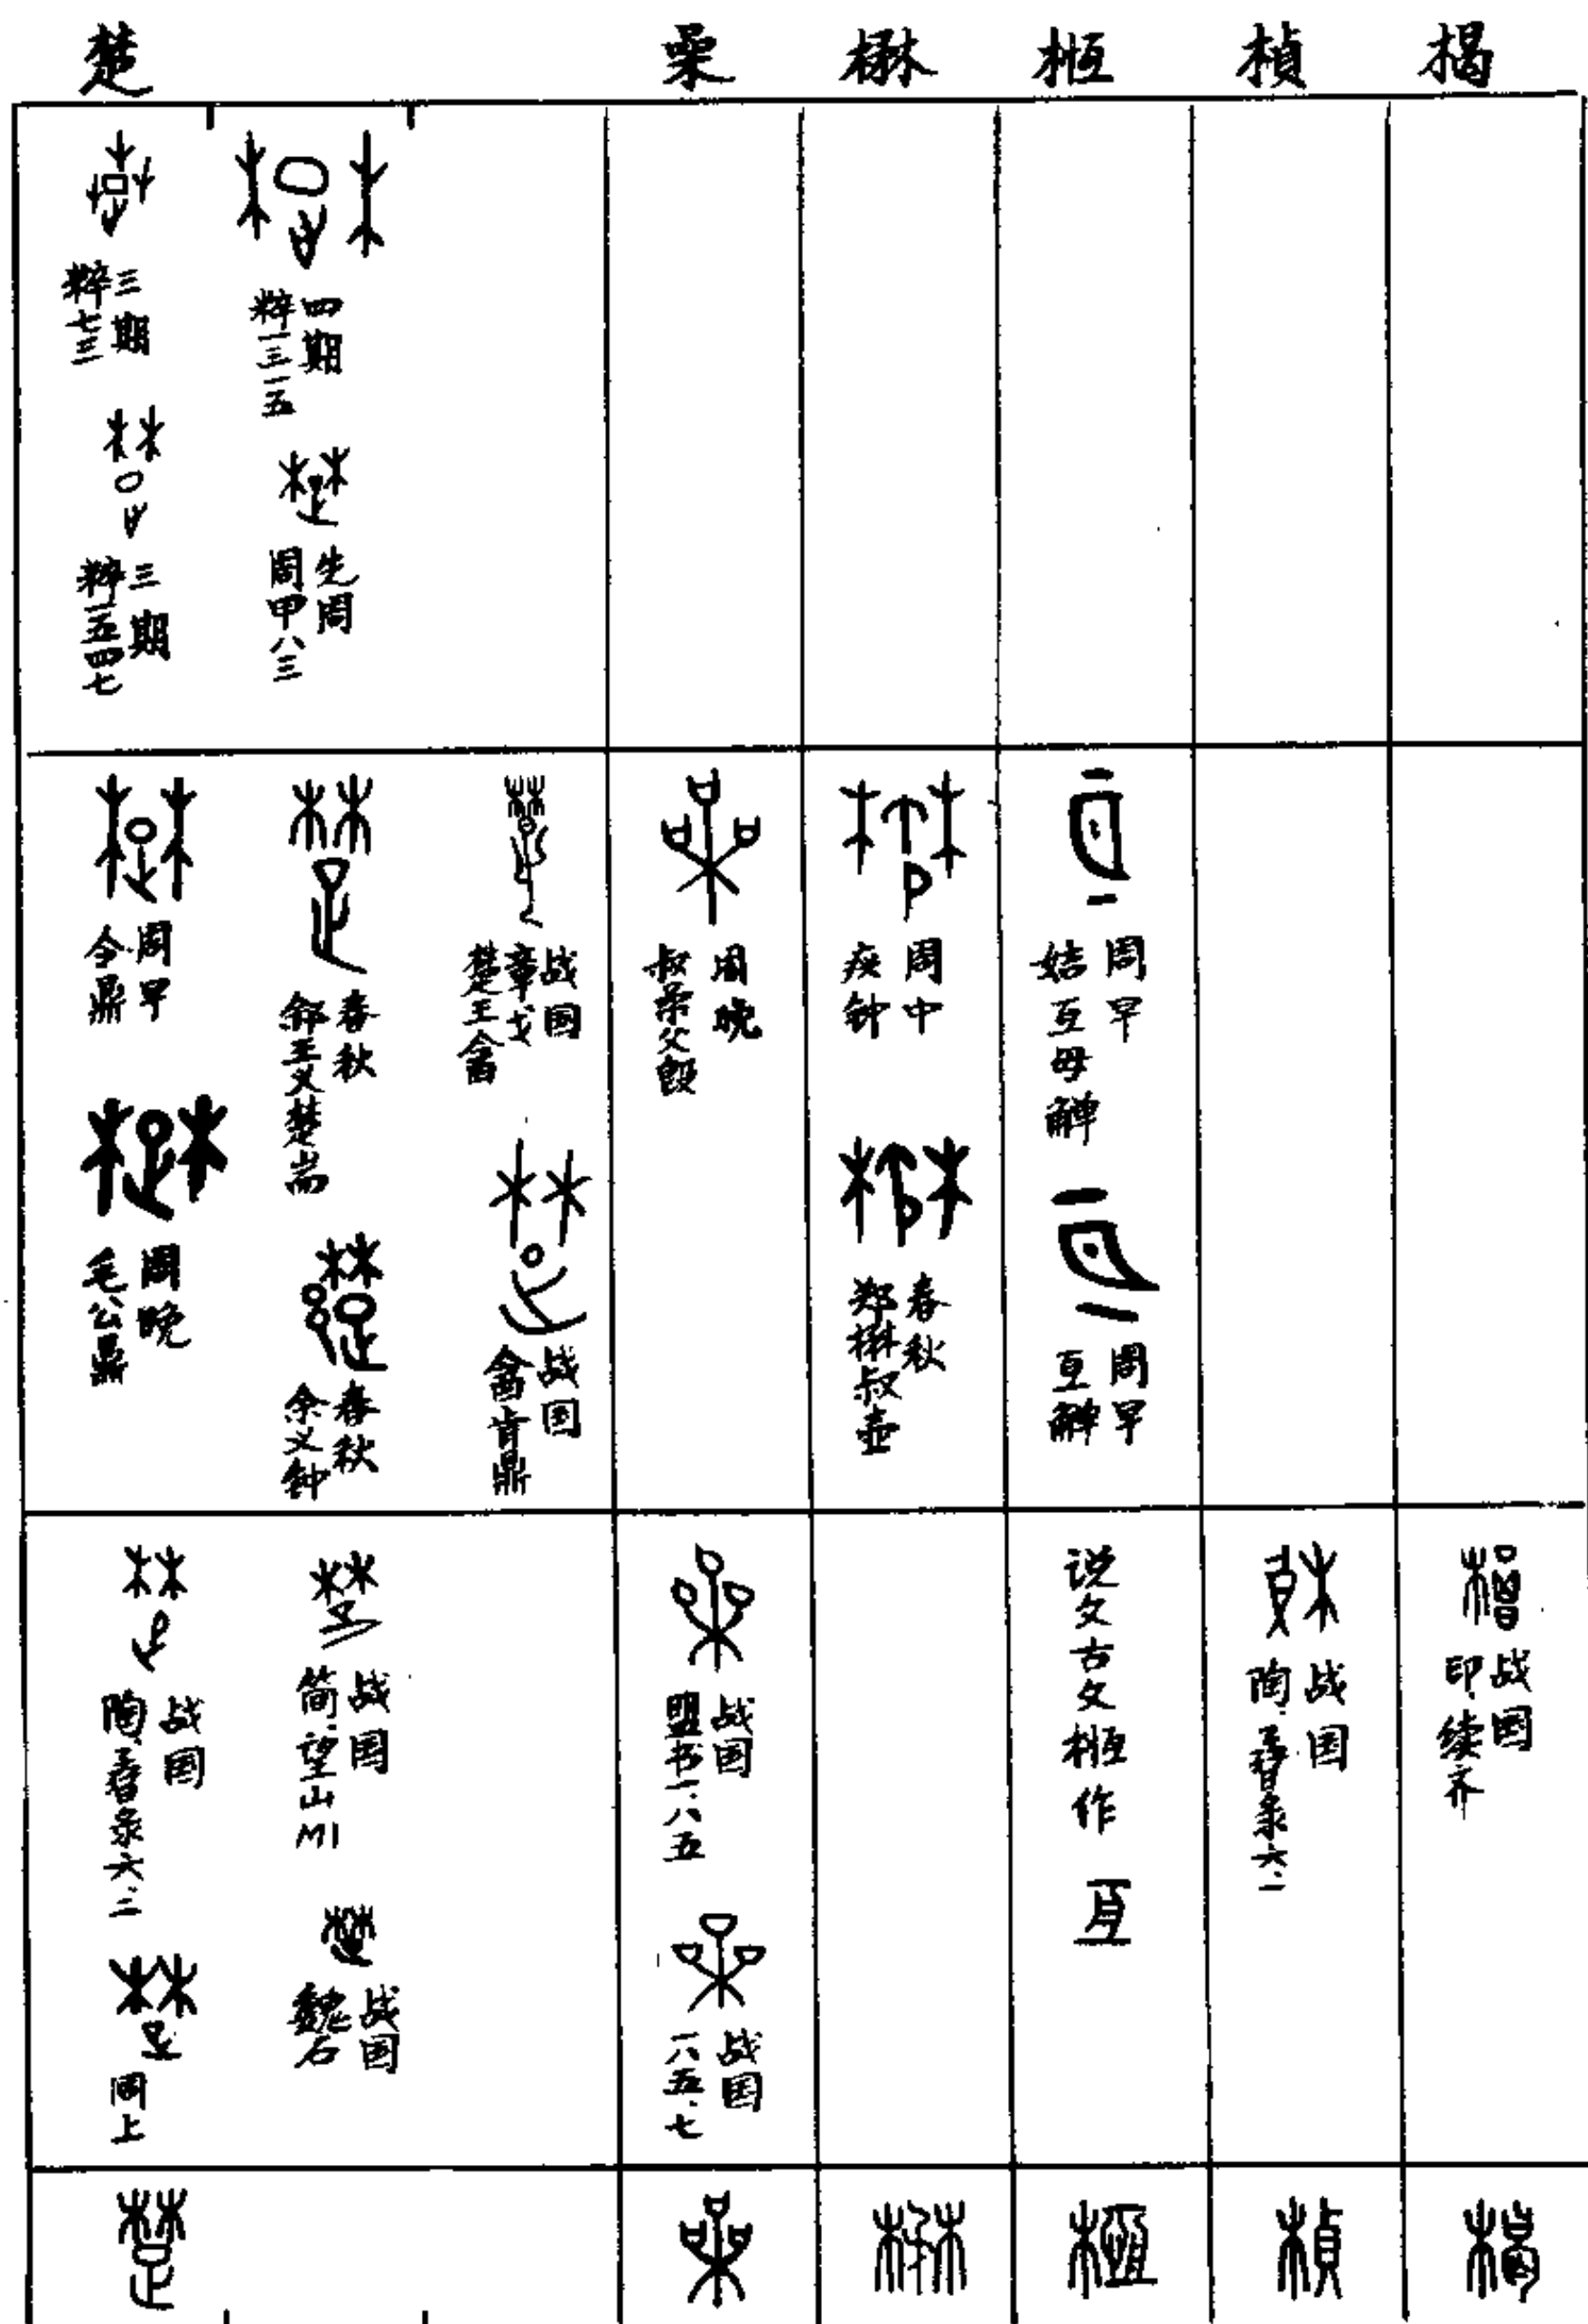 楚 栗 楙 極 楨 楬
三期
粹七三
四期
粹一三一五
三期
粹一五四七
先周
周甲八三
周早
令鼎
春秋
郐王义楚耑
战国
楚王酓
章戈
周晚
叔栗父𣪘
周中
𤼈钟
周早
姞亙母觶
周晚
毛公鼎
春秋
余义钟
战国
酓肯鼎
春秋
郑楙叔壶
周早
亙觶
战国
陶.舂彔六.二
战国
简.望山M1
战国
盟书一.八五
说文古文極作 亙
战国
陶.舂彔六.一
战国
印.续齐
同上
战国
魏石
战国
一八五.七